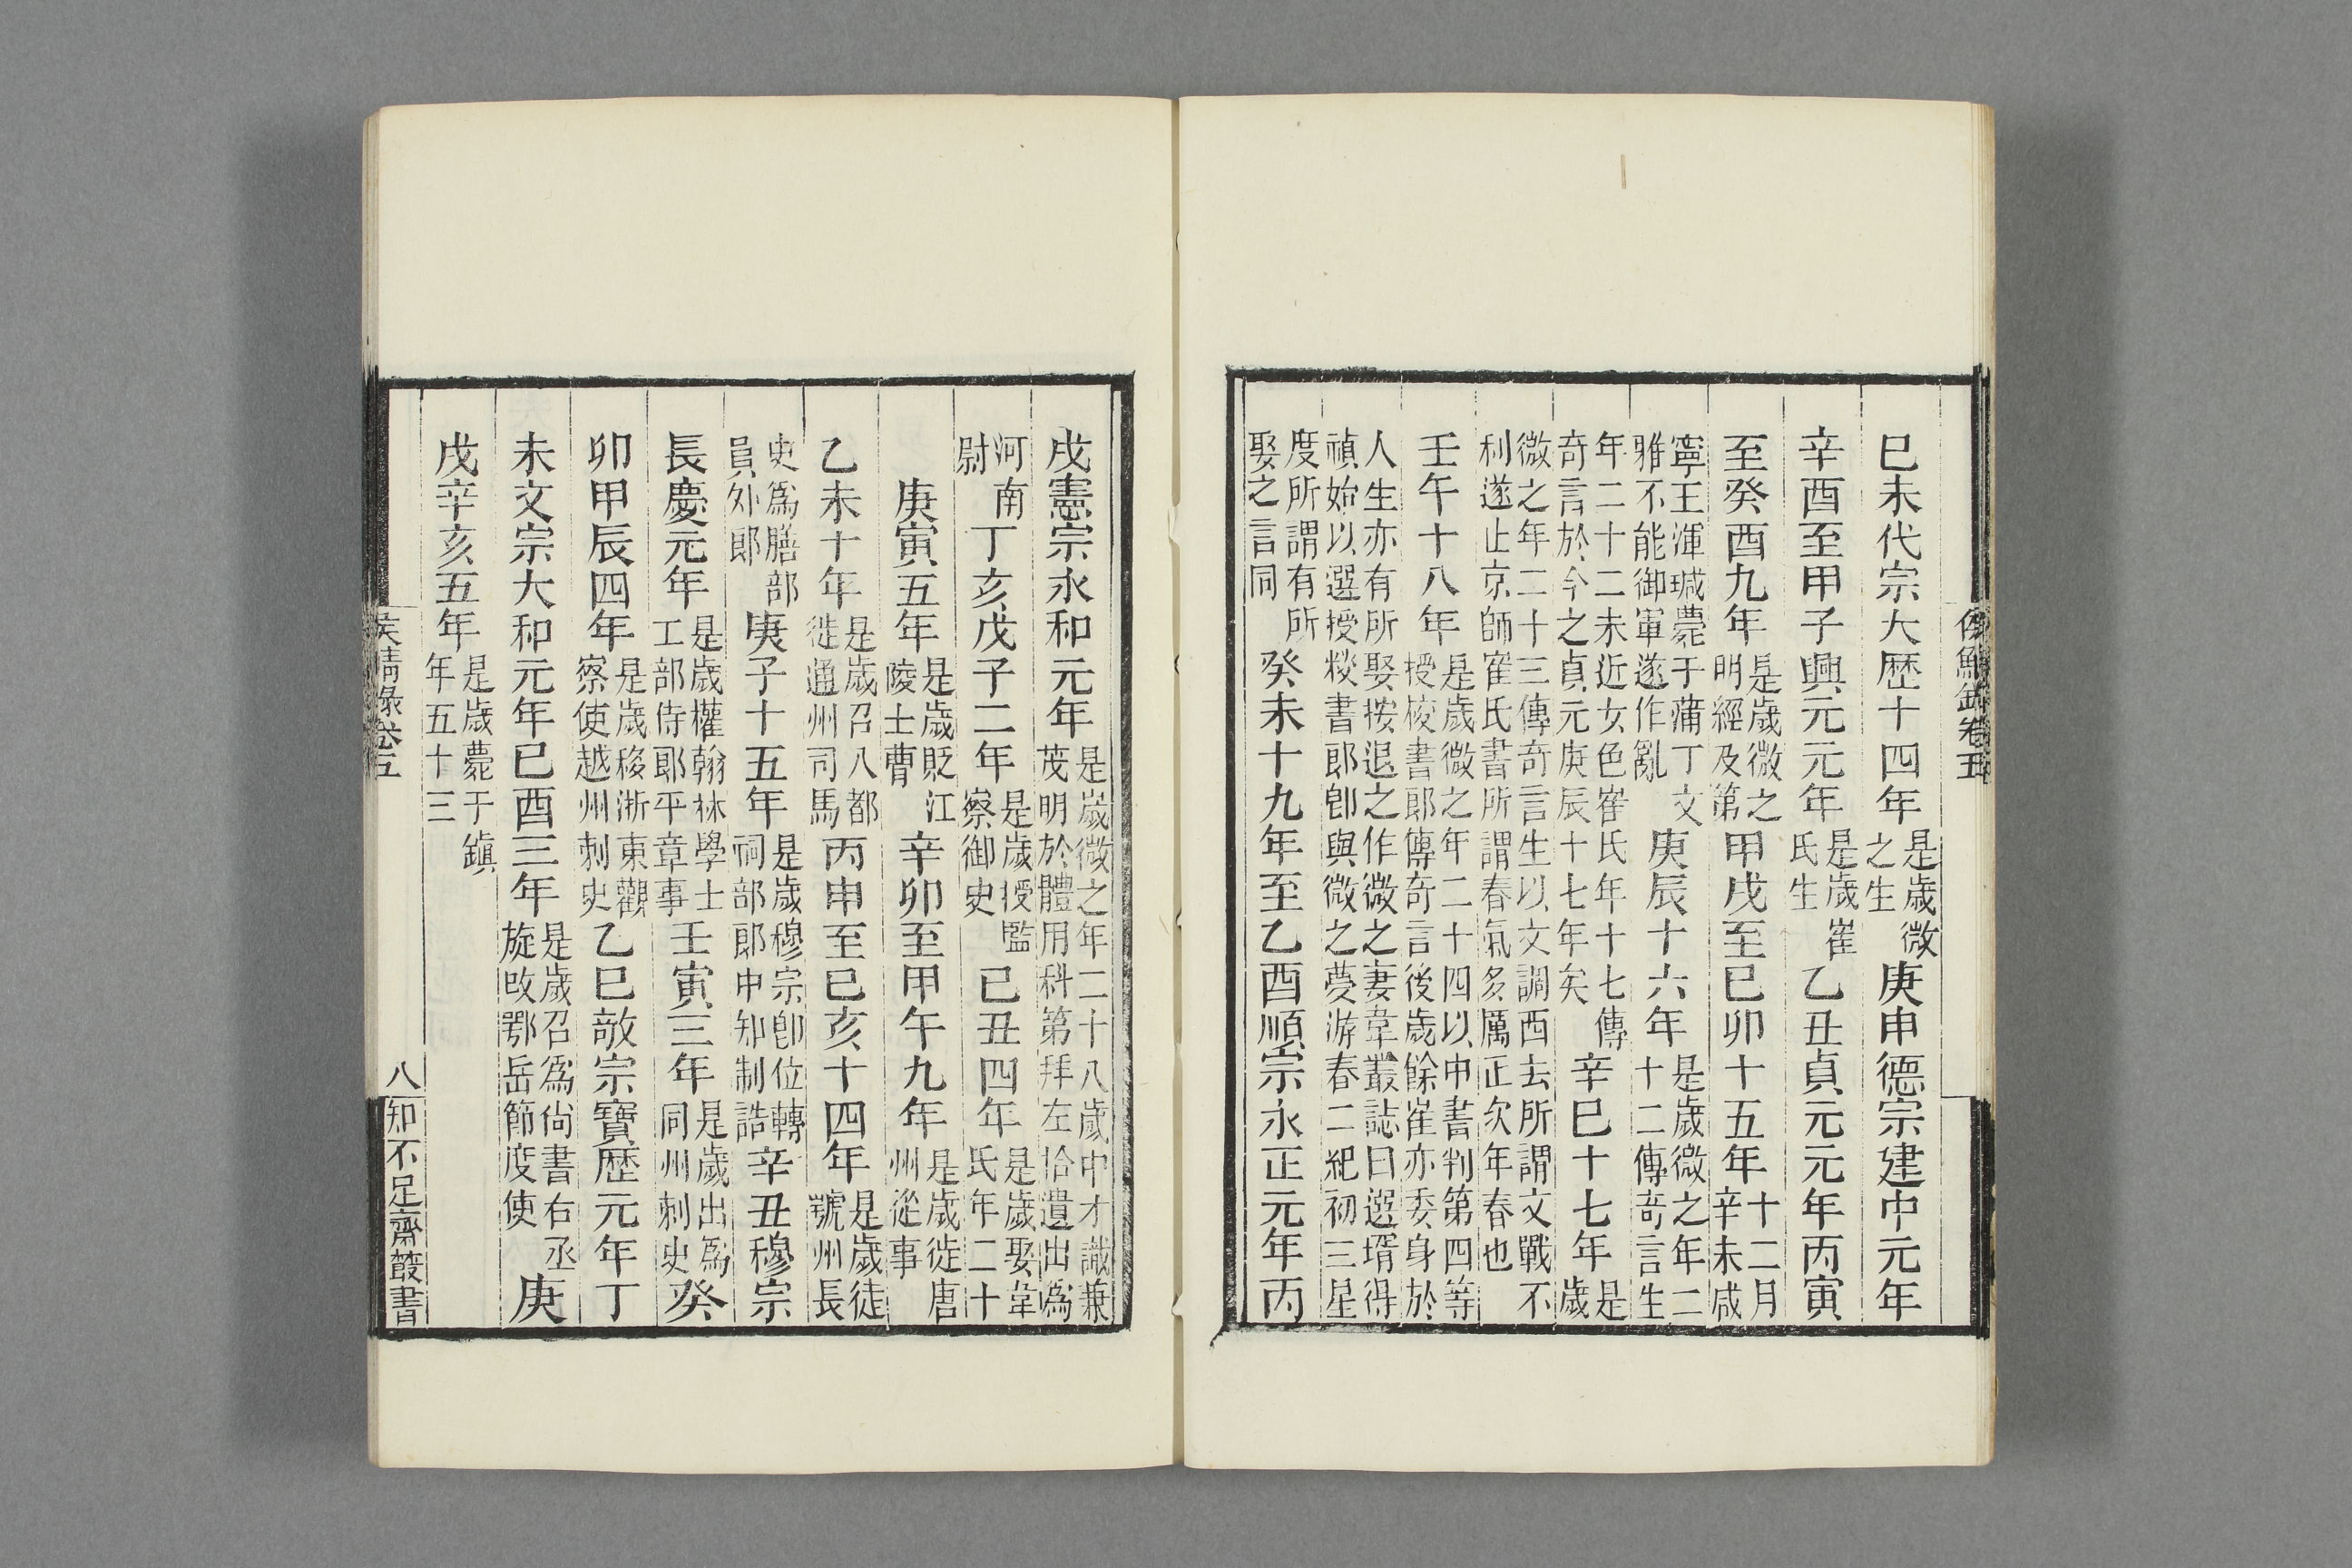 侯鯖錄卷五
已未代宗大歷十四年是歲微之生庚申德宗建中元年
辛酉至甲子興元元年是歲崔氏生乙丑貞元元年丙寅
至癸酉九年是歲微之明經及第甲戌至已卯十五年十二月辛未咸
寧王渾瑊薨于蒲丁文雅不能御軍遂作亂庚辰十六年是歲微之年二十二傳奇言生
年二十二未近女色崔氏年十七傳奇言於今之貞元庚辰十七年矣辛巳十七年是歲
微之年二十三傳奇言生以文調西去所謂文戰不利遂止京師崔氏書所謂春氣多厲正次年春也
壬午十八年是歲微之年二十四以中書判第四等授校書郎傳奇言後歲餘崔亦委身於
人生亦有所娶按退之作微之妻韋叢誌曰選壻得禎始以選授校書郎卽與微之夢游春二紀初三星
度所謂有所娶之言同癸未十九年至乙酉順宗永正元年丙
戌憲宗永和元年是歲微之年二十八歲中才識兼茂明於體用科第拜左拾遺出爲
河南尉丁亥戊子二年是歲授監察御史已丑四年是歲娶韋氏年二十
庚寅五年是歲貶江陵士曹辛卯至甲午九年是歲徙唐州從事
乙未十年是歲召八都徙通州司馬丙申至已亥十四年是歲徒虢州長
史爲膳部員外郎庚子十五年是歲穆宗卽位轉祠部郎中知制誥辛丑穆宗
長慶元年是歲權翰林學士工部侍郎平章事壬寅三年是歲出爲同州刺史癸
卯甲辰四年是歲移浙東觀察使越州刺史乙巳敬宗寶歷元年丁
未文宗大和元年已酉三年是歲召爲尙書右丞旋改鄂岳節度使庚
戊辛亥五年是歲薨于鎮年五十三
侯鯖錄卷五
八
知不足齋叢書